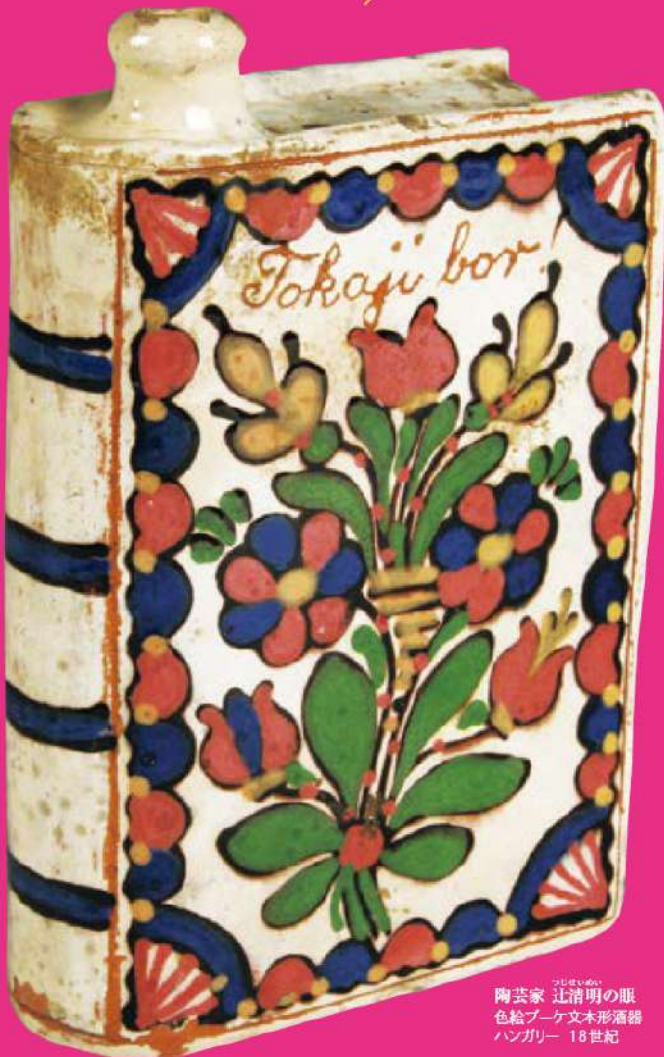 Tokaji bor!
陶芸家 辻清明の眼
つじせいめい
色絵ブーケ文本形酒器
ハンガリー 18世紀